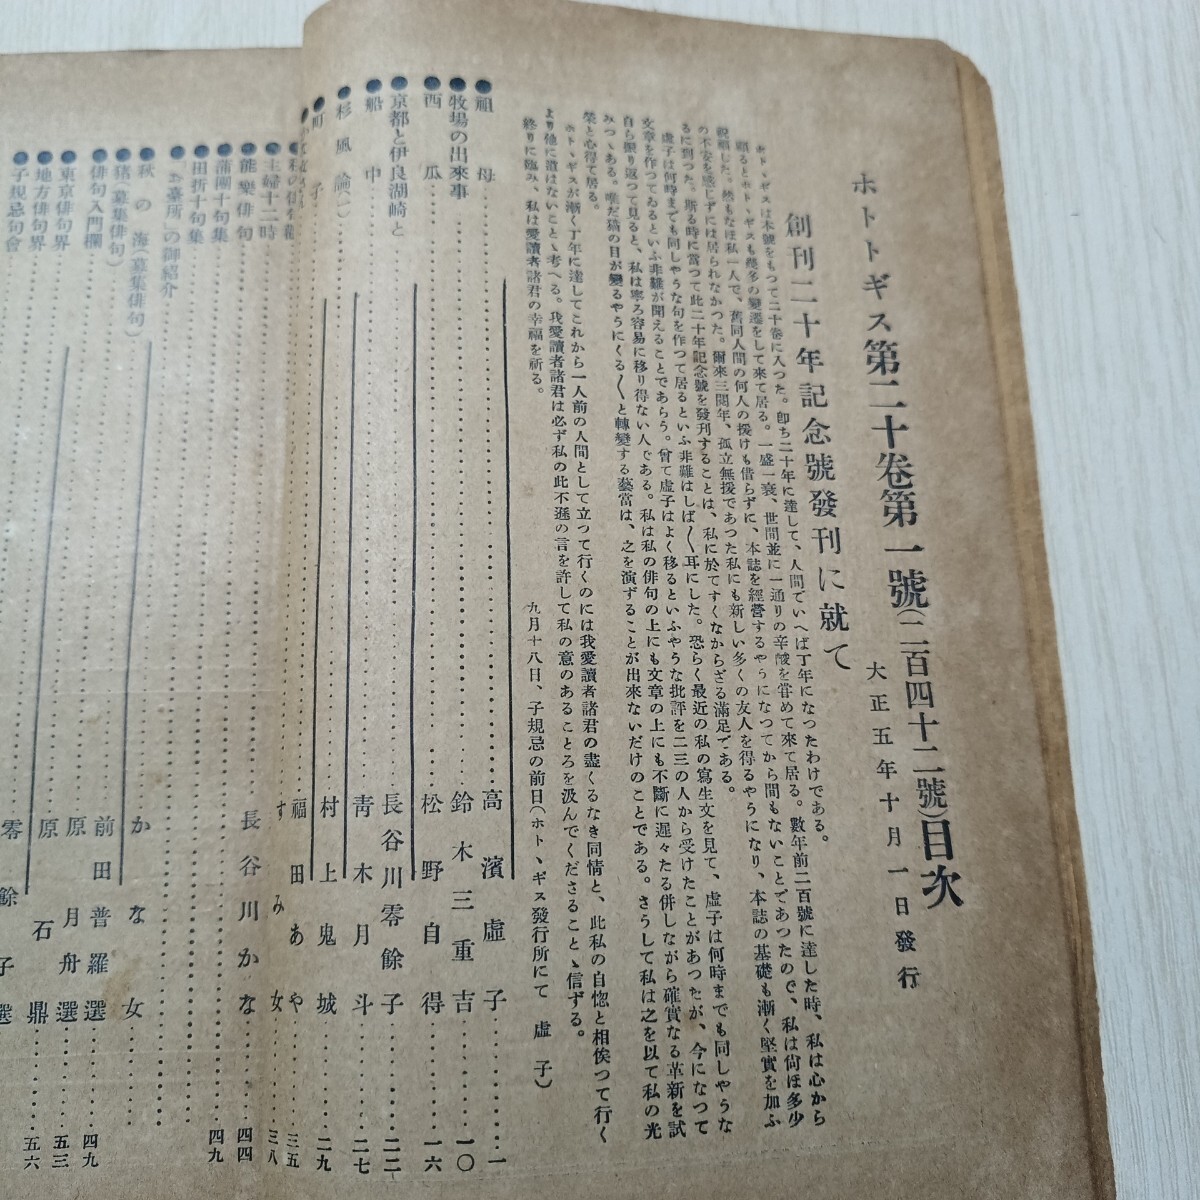 ホトトギス第二十卷第一號(二百四十二號)目次
大正五年十月一日發行
創刊二十年記念號發刊に就て
ホトヽギスは本號をもつて二十卷に入つた。卽ち二十年に達して、人間でいへば丁年になつたわけである。
顧るとホトヽギスも幾多の變遷をして來て居る。一盛一衰、世間並に一通りの辛酸を甞めて來て居る。數年前二百號に達した時、私は心から
祝福した。然もなほ私一人で、舊同人間の何人の援けも借らずに、本誌を經營するやうになつてから間もないことであつたので、私は尙ほ多少
の不安を感じずには居られなかつた。爾來三閱年、孤立無援であつた私にも新しい多くの友人を得るやうになり、本誌の基礎も漸く堅實を加ふ
るに到つた。斯る時に當つて此二十年記念號を發刊することは、私に於てすくなからざる滿足である。
虛子は何時までも同しやうな句を作つて居るといふ非難はしば〱耳にした。恐らく最近の私の寫生文を見て、虛子は何時までも同しやうな
文章を作つてゐるといふ非難が聞えることであらう。曾て虛子はよく移るといふやうな批評を二三の人から受けたことがあつたが、今になつて
自ら振り返つて見ると、私は寧ろ容易に移り得ない人である。私は私の俳句の上にも文章の上にも不斷に遲々たる併しながら確實なる革新を試
みつゝある。唯だ猫の目が變るやうにくる〱と轉變する藝當は、之を演ずることが出來ないだけのことである。さうして私は之を以て私の光
榮と心得て居る。
ホトヽギスが漸く丁年に達してこれから一人前の人間として立つて行くのには我愛讀者諸君の盡くるなき同情と、此私の自惚と相俟つて行く
より他に證はないことゝ考へる。我愛讀者諸君は必ず私の此不遜の言を許して私の意のあることろを汲んでくださることゝ信ずる。
終りに臨み、私は愛讀者諸君の幸福を祈る。
九月十八日、子規忌の前日(ホトヽギス發行所にて 虛子)
●祖母……高濱虛子……一
●牧場の出來事……鈴木三重吉……一〇
●西瓜……松野自得……一六
●京都と伊良湖崎と……長谷川零餘子……二二
●船中……靑木月斗……二七
●杉風論(一)……村上鬼城……二九
●町子……福田あや……三五
すみ女……三八
●主婦十二時
●能樂俳句……長谷川かな……四四
●蒲團十句集……四九
●田折十句集
●「お臺所」の御紹介
●秋の海(募集俳句)……かな女
●猪(募集俳句)
●俳句入門欄……前田普羅選……四九
●東京俳句界……原月舟選……五三
●地方俳句界……原石鼎……五六
●子規忌句會……零餘子選